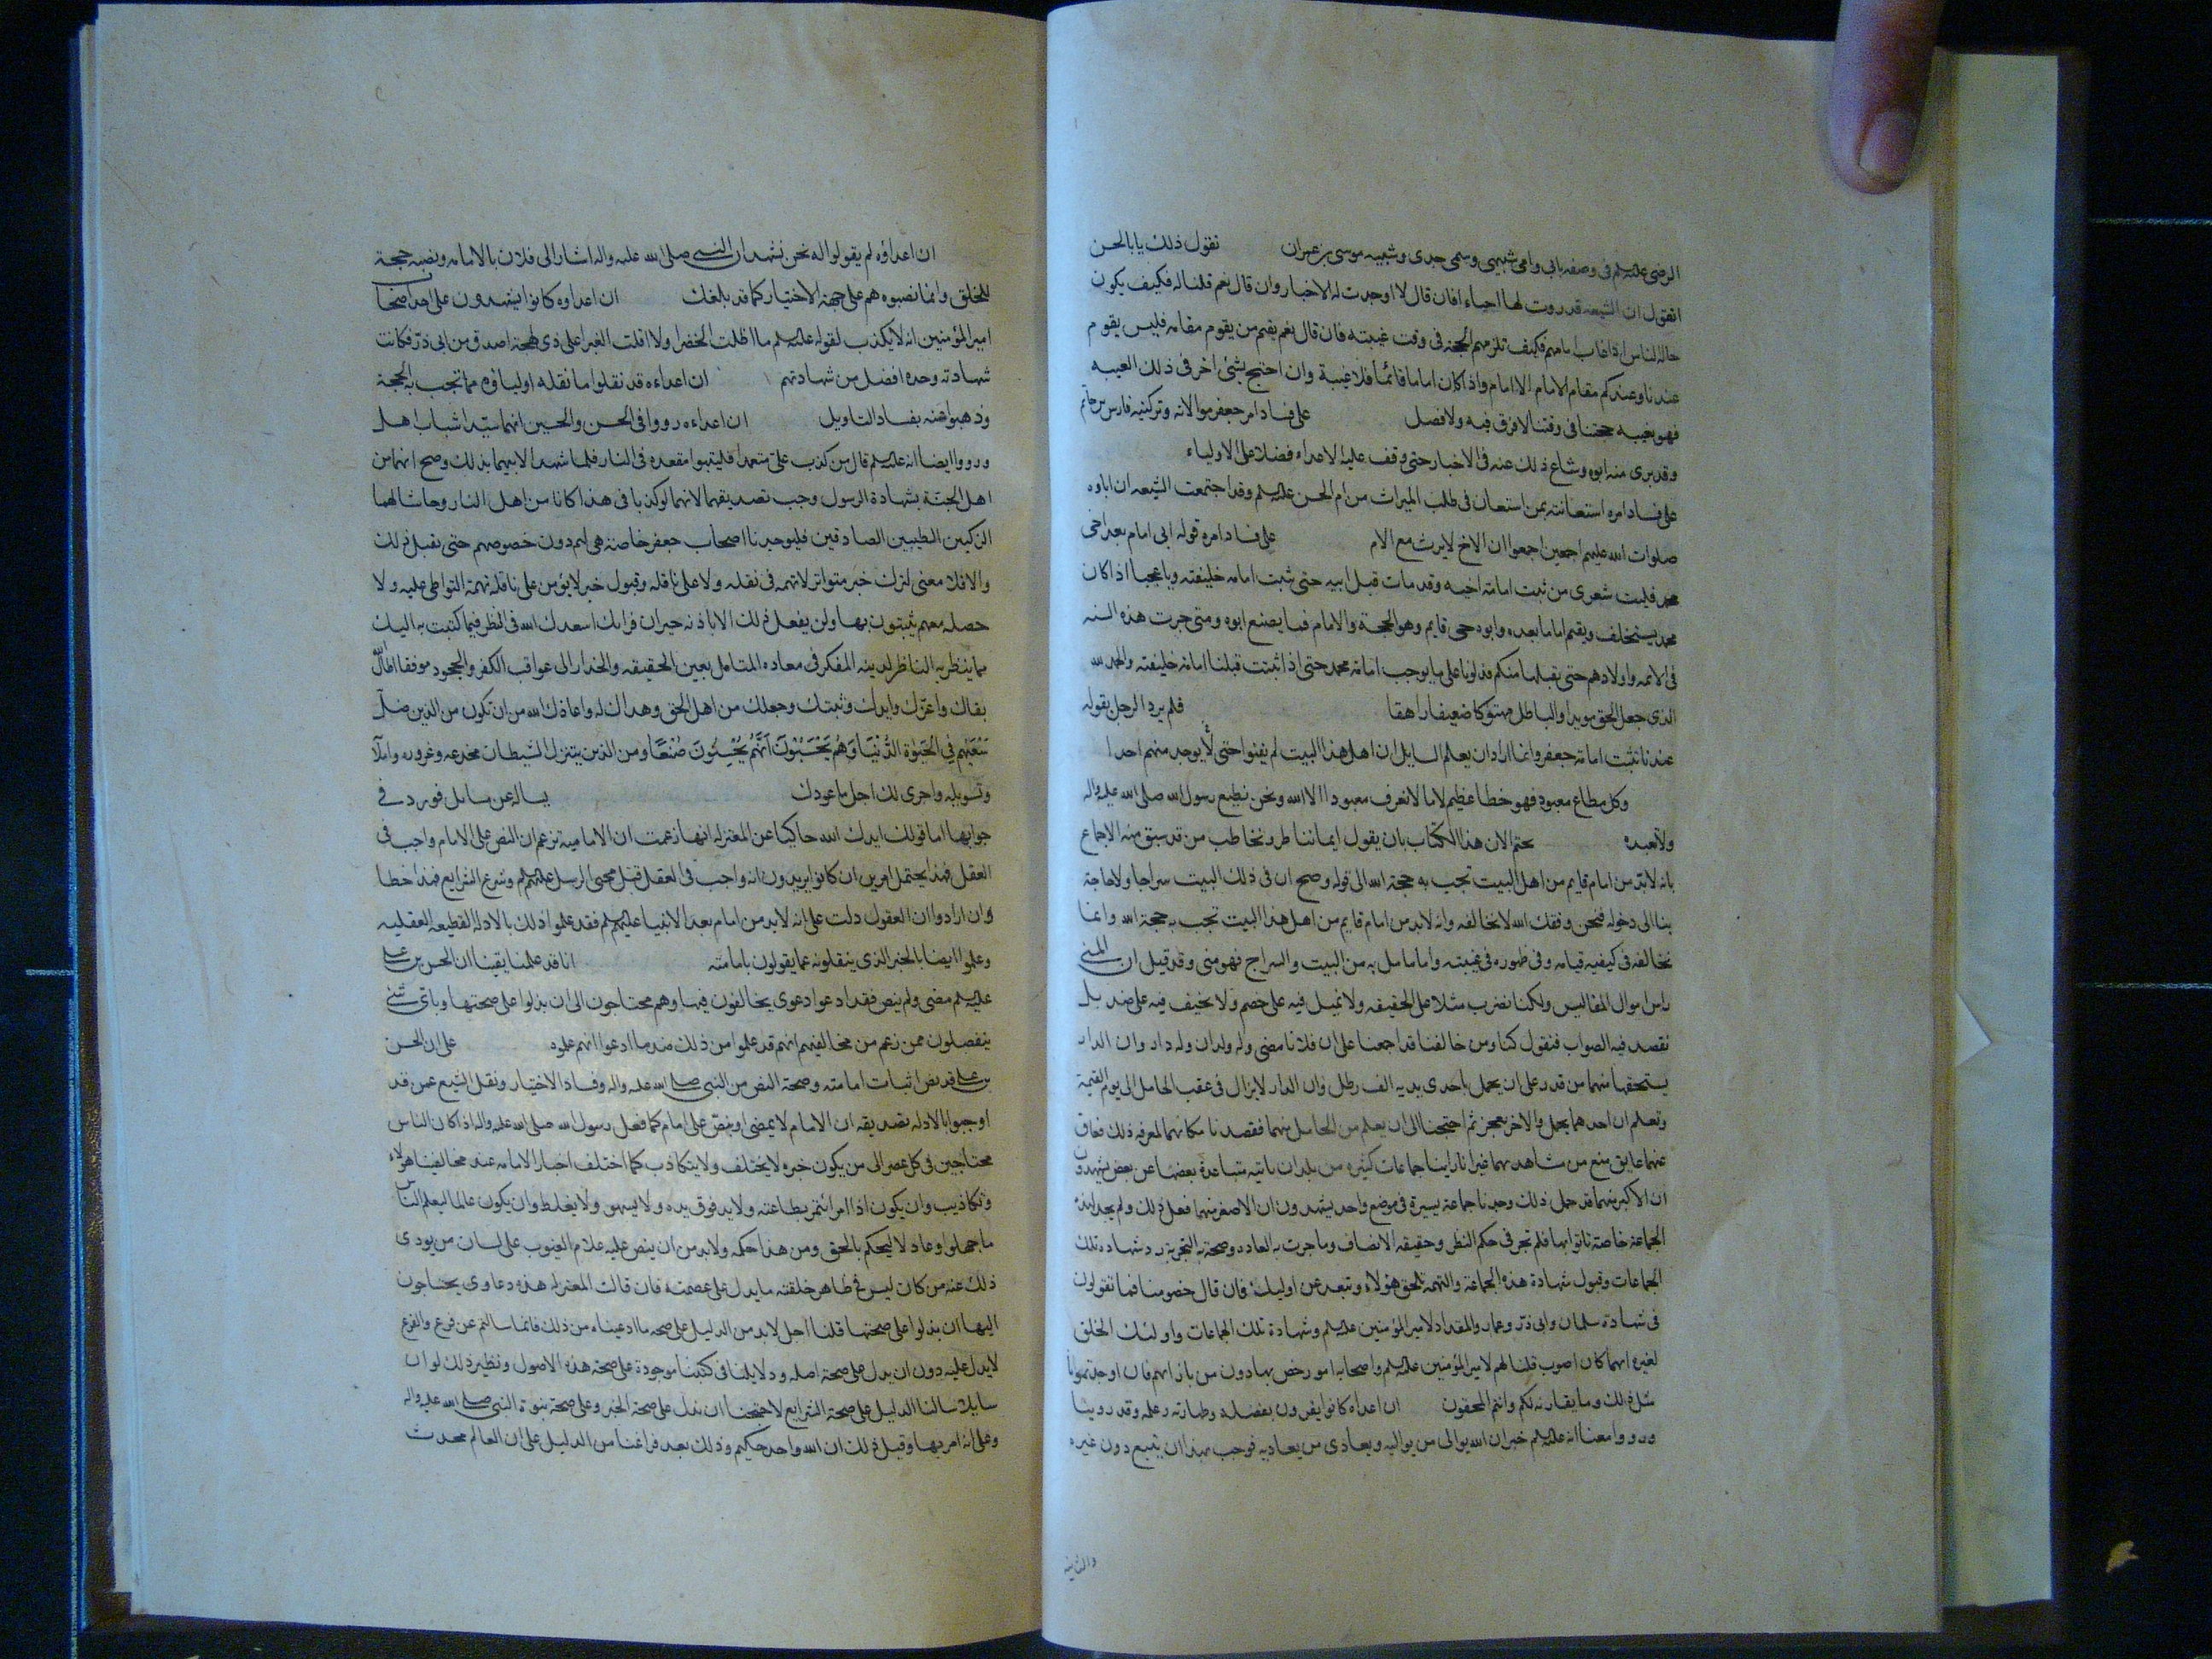 الرضی علیه‌السلم فی وصفه بابی وامی شبیهی وسمی جدی وشبیه موسی بن عمران نقول ذلک یابا الحسن
اتقول ان الشیعه قد روت لها احیاء افان قال لا اوجدت له الاخبار وان قال نعم قلنا له فکیف یکون
حالة الناس اذا غاب امامهم فکیف تلزمهم الحجة فی وقت غیبته فان قال نعم یقیم من یقوم مقامه فلیس یقوم
عندنا وعندکم مقام الامام الا امام واذا کان اماما قائما فلا غیبة وان احتج بشئ اخر فی ذلک الغیبه
فهو بعینه حجتنا فی وقتنا لا فرق فیه ولا فصل علی فساد امر جعفر موالاته وتزکیته فارس بن حاتم
وقد بری منه ابوه وشاع ذلک عنه فی الاخبار حتی وقف علیه الاعداء فضلا عن الاولیاء
علی فساد امره استعانته بمن استعان فی طلب المیراث من ام الحسن علیه‌السلم وقد اجتمعت الشیعه ان اباوه
صلوات الله علیهم اجمعین اجمعوا ان الاخ لا یرث مع الام علی فساد امره قوله ابی امام بعد اخی
محمد فلیت شعری متی ثبت امامة اخیه وقد مات قبل ابیه حتی تثبت امامه خلیفته ویا عجبا اذا کان
محمد یستخلف ویقیم اماما بعده وابوه حی قایم وهو الحجة والامام فما یصنع ابوه ومتی جرت هذه السنه
فی الائمه واولادهم حتی نقبلها منکم فدلونا علی ما یوجب امامة محمد حتی اذا ثبتت قبلنا امامة خلیفته والحمد لله
الذی جعل الحق مویدا والباطل مهتوکا ضعیفا زاهقا فلم یرد الرجل بقوله
عندنا نثبت امامة جعفر وانما اراد ان یعلم السایل ان اهل هذا البیت لم یفنوا حتی لا یوجد منهم احدا
وکل مطاع معبود فهو خطا عظیم لاما لا نعرف معبودا الا الله ونحن نطیع رسول الله صلی الله علیه واله
ولا نعبده نختم الان هذا الکتاب بان نقول ایماننا طر ونخاطب من قد سبق منه الاجماع
بانه لا بد من امام قایم من اهل البیت تجب به حجة الله الی قوله وصح ان فی ذلک البیت سراجا ولا حاجة
بنا الی دخوله فنحن وفقک الله لا نخالفه وانه لابد من امام قایم من اهل هذا البیت تجب به حجة الله وانما
نخالفه فی کیفیه قیامه وفی ظهوره فی غیبته واما ما مثل به من البیت والسراج فهو منی وقد قیل ان المنی
راس اموال المفالیس ولکنا نضرب مثلا علی الحقیقه ولا نمیل فیه علی خصم ولا نحیف فیه علی ضد بل
نقصد فیه الصواب فنقول کنا ومن خالفنا قد اجمعنا علی ان فلانا مضی وله ولدان وله دار وان الدار
یستحقها منهما من قدر علی ان یحمل باحدی یدیه الف رطل وان الدار لا یزال فی عقب الحامل الی یوم القیمة
ونعلم ان احدهما یحمل والاخر یعجز ثم احتجنا الی ان یعلم من الحامل منهما فقصدنا مکانهما لمعرفة ذلک فعاق
عنهما عایق منع من مشاهدتهما غیر انا راینا جماعات کثیره من بلدان نایئة متباعدة بعضها عن بعض یشهدون
ان الاکبر منهما قد حمل ذلک ووجدنا جماعة یسیرة فی موضع واحد یشهدون ان الاصغر منهما فعل ذلک ولم یجد لهذه
الجماعة خاصة تاتوا بها فلم تجز فی حکم النظر وحقیقة الانصاف وما جرت به العاده وصحة به التجربة رد شهادة تلک
الجماعات وقبول شهادة هذه الجماعة والتهمه تلحق هؤلاء وتبعد عن اولیک فان قال خصومنا فما تقولون
فی شهادة سلمان وابی ذر وعمار والمقداد لامیر المؤمنین علیه‌السلم وشهادة تلک الجماعات واولئک الخلق
لغیره ایهما کان اصوب قلنا لهم لامیر المؤمنین علیه‌السلم واصحابه امور خص بها دون من بازائهم فان اوجدتمونا
مثل ذلک وما یقاربه لکم وانتم المحقون ان اعداه کانوا یقرون بفضله وطهارته وعلمه وقد روینا
ورووا معنا انه علیه‌السلم خبر ان الله یوالی من یوالیه ویعادی من یعادیه فوجب بهذا ان یتبع دون غیره
والثانیه
ان اعداؤه لم یقولوا له نحن نشهد ان النبی صلی الله علیه واله اشار الی فلان بالامامه ونصبه حجة
للخلق وانما نصبوه هم علی جهة الاختیار کما قد بلغک ان اعداوه کانوا یشهدون علی احد اصحاب
امیر المؤمنین انه لا یکذب لقوله علیه‌السلم ما اظلت الخضرا ولا اقلت الغبرا علی ذی لهجة اصدق من ابی ذر فکانت
شهادته وحده افضل من شهادتهم ان اعداءه قد نقلوا ما نقله اولیاؤه مما تجب به الحجة
وذهبوا عنه بفساد التاویل ان اعداءه رووا فی الحسن والحسین انهما سیدا شباب اهل
ورووا ایضا انه علیه‌السلم قال من کذب علی متعمدا فلیتبوا مقعده فی النار فلما شهدا لابیهما بذلک وصح انهما من
اهل الجنة بشهادة الرسول وجب تصدیقهما لانهما لو کذبا فی هذا کانا من اهل النار وحاشا لهما
الزکیین الطیبین الصادقین فلیوجدنا اصحاب جعفر خاصة هی لهم دون خصومهم حتی یقبل ذلک
والا فلا معنی لترک خبر متواتر لا تهمه فی نقله ولا علی ناقله وقبول خبر لا یؤمن علی ناقله تهمة التواطی علیه ولا
حصله معهم یثبتون بها ولن یفعل ذلک الا تایه حیران فرایک اسعدک الله فی النظر فیما کتبت به الیک
مما ینظر به الناظر لدینه المفکر فی معاده المتامل بعین الحقیقه والحذار الی عواقب الکفر والجحود موفقا اطال الله
بقاک واعزک وایدک وثبتک وجعلک من اهل الحق وهداک له واعاذک الله من ان تکون من الذین ضل
سَعْیُهُم فِی الْحَیٰوة الدُّنْیَا وَهُمْ یَحْسَبُونَ اَنَّهُم یُحْسِنُونَ صُنْعًا ومن الذین یستزل الشیطان بخدعه وغروره واملائه
وتسویله واجری لک اجمل ما عودک یساله عن مسائل فورد فی
جوابها اما قولک ایدک الله حاکیا عن المعتزله انها زعمت ان الامامیه تزعم ان النص علی الامام واجب فی
العقل فهذا یحتمل امرین ان کانوا یریدون انه واجب فی العقل قبل مجی الرسل علیهم‌السلم وشرع الشرایع فهذا خطا
وان ارادوا ان العقول دلت علی انه لابد من امام بعد الانبیا علیهم‌السلم فقد علموا ذلک بالادلة القطیعه العقلیه
وعلموا ایضا بالخبر الذی ینقلونه عما یقولون بامامته انا قد علمنا یقینا ان الحسن بن علی
علیه‌السلم مضی ولم ینص فقد ادعوا دعوی یخالفون فیها وهم محتاجون الی ان یدلوا علی صحتها وبای شئ
ینفصلون ممن زعم من مخالفیهم انهم قد علموا من ذلک ضد ما ادعوا انهم علموه علی ان الحسن
بن علی قد نص اثبات امامته وصحة النص من النبی صلی الله علیه واله وفساد الاختیار ونقل الشیع عمن قد
اوجبوا بالادلة تصدیقه ان الامام لا یمضی او ینص علی امام کما فعل رسول الله صلی الله علیه واله اذا کان الناس
محتاجین فی کل عصر الی من یکون خبره لا یختلف ولا یتکاذب کما اختلف اخبار الامامه عند مخالفینا هؤلاء
وتکاذیب وان یکون اذا امر ائتمر بطاعته ولا ید فوق یده ولا یسهو ولا یغلط وان یکون عالما لیعلم الناس
ما جهلوا وعادلا لیحکم بالحق ومن هذا حکمه ولابد من ان ینص علیه علام الغیوب علی لسان من یودی
ذلک عنه من کان لیس فی ظاهر خلقته ما یدل علی عصمته فان قالت المعتزله هذه دعاوی یحتاجون
الیها ان یدلوا علی صحتها قلنا اجل لابد من الدلیل علی صحه ما ادعیناه من ذلک فانما سالتم عن فرع والفرع
لا یدل علیه دون ان یدل علی صحة اصله ودلایلنا فی کتبنا موجودة علی صحة هذه الاصول ونظیر ذلک لو ان
سایلا سالنا الدلیل علی صحة الشرایع لاحتجنا ان ندل علی صحة الخبر وعلی صحة نبوة النبی صلی الله علیه واله
وعلی انه امر بها وقبل ذلک ان الله واحد حکیم وذلک بعد فراغنا من الدلیل علی ان العالم محدث